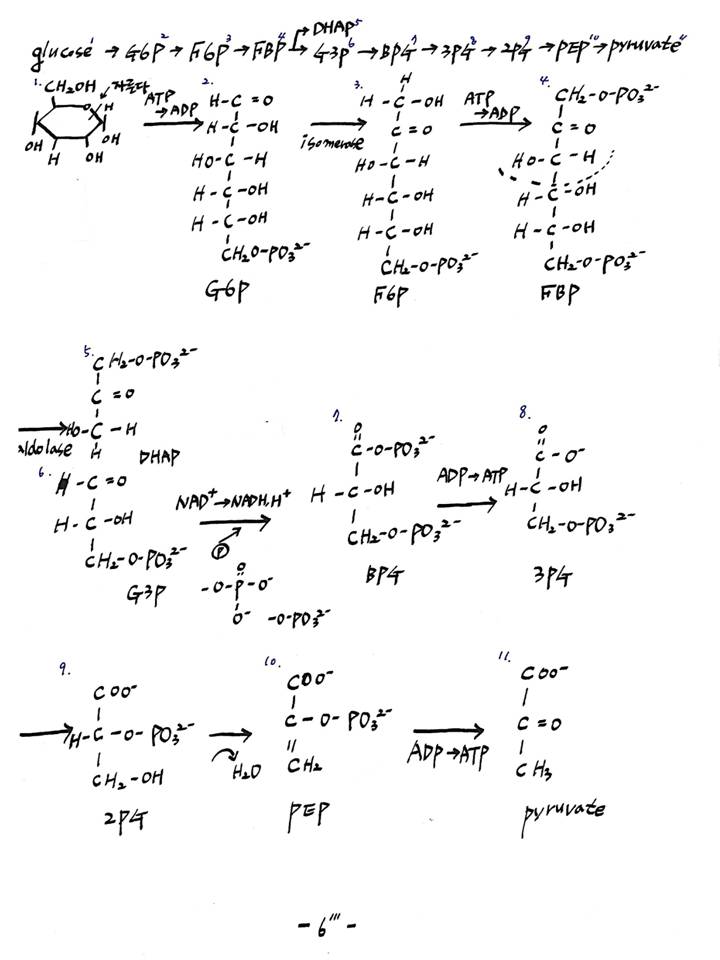 → DHAP⁵
glucose¹ → G6P² → F6P³ → FBP⁴ → G3P⁶ → BPG⁷ → 3PG⁸ → 2PG⁹ → PEP¹⁰ → pyruvate¹¹
1. CH₂OH
O H
OH H OH OH
ATP → ADP
2. H-C=O
H-C-OH
HO-C-H
H-C-OH
H-C-OH
CH₂O-PO₃²⁻
G6P
isomerase
3. H
H-C-OH
C=O
HO-C-H
H-C-OH
H-C-OH
CH₂-O-PO₃²⁻
F6P
ATP → ADP
4. CH₂-O-PO₃²⁻
C=O
HO-C-H
H-C-OH
H-C-OH
CH₂-O-PO₃²⁻
FBP
aldolase
5. CH₂-O-PO₃²⁻
C=O
HO-C-H
H
DHAP
6. H-C=O
H-C-OH
CH₂-O-PO₃²⁻
G3P
NAD⁺ → NADH, H⁺
Ⓟ
O
-O-P-O⁻
O⁻
-O-PO₃²⁻
7. O
C-O-PO₃²⁻
H-C-OH
CH₂-O-PO₃²⁻
BPG
ADP → ATP
8. O
C-O⁻
H-C-OH
CH₂-O-PO₃²⁻
3PG
9. COO⁻
H-C-O-PO₃²⁻
CH₂-OH
2PG
H₂O
10. COO⁻
C-O-PO₃²⁻
CH₂
PEP
ADP → ATP
11. COO⁻
C=O
CH₃
pyruvate
- 6''' -